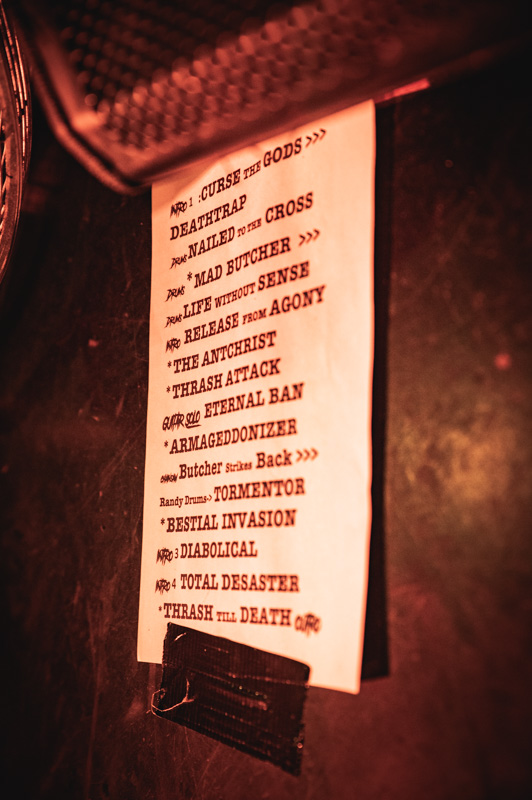 INTRO 1 :CURSE THE GODS >>>
DEATHTRAP
DRUMS NAILED TO THE CROSS
DRUMS *MAD BUTCHER >>>
DRUMS LIFE WITHOUT SENSE
INTRO RELEASE FROM AGONY
*THE ANTCHRIST
*THRASH ATTACK
GUITAR SOLO ETERNAL BAN
*ARMAGEDDONIZER
Butcher Strikes Back >>>
Randy Drums-> TORMENTOR
*BESTIAL INVASION
INTRO 3 DIABOLICAL
INTRO 4 TOTAL DESASTER
*THRASH TILL DEATH OUTRO